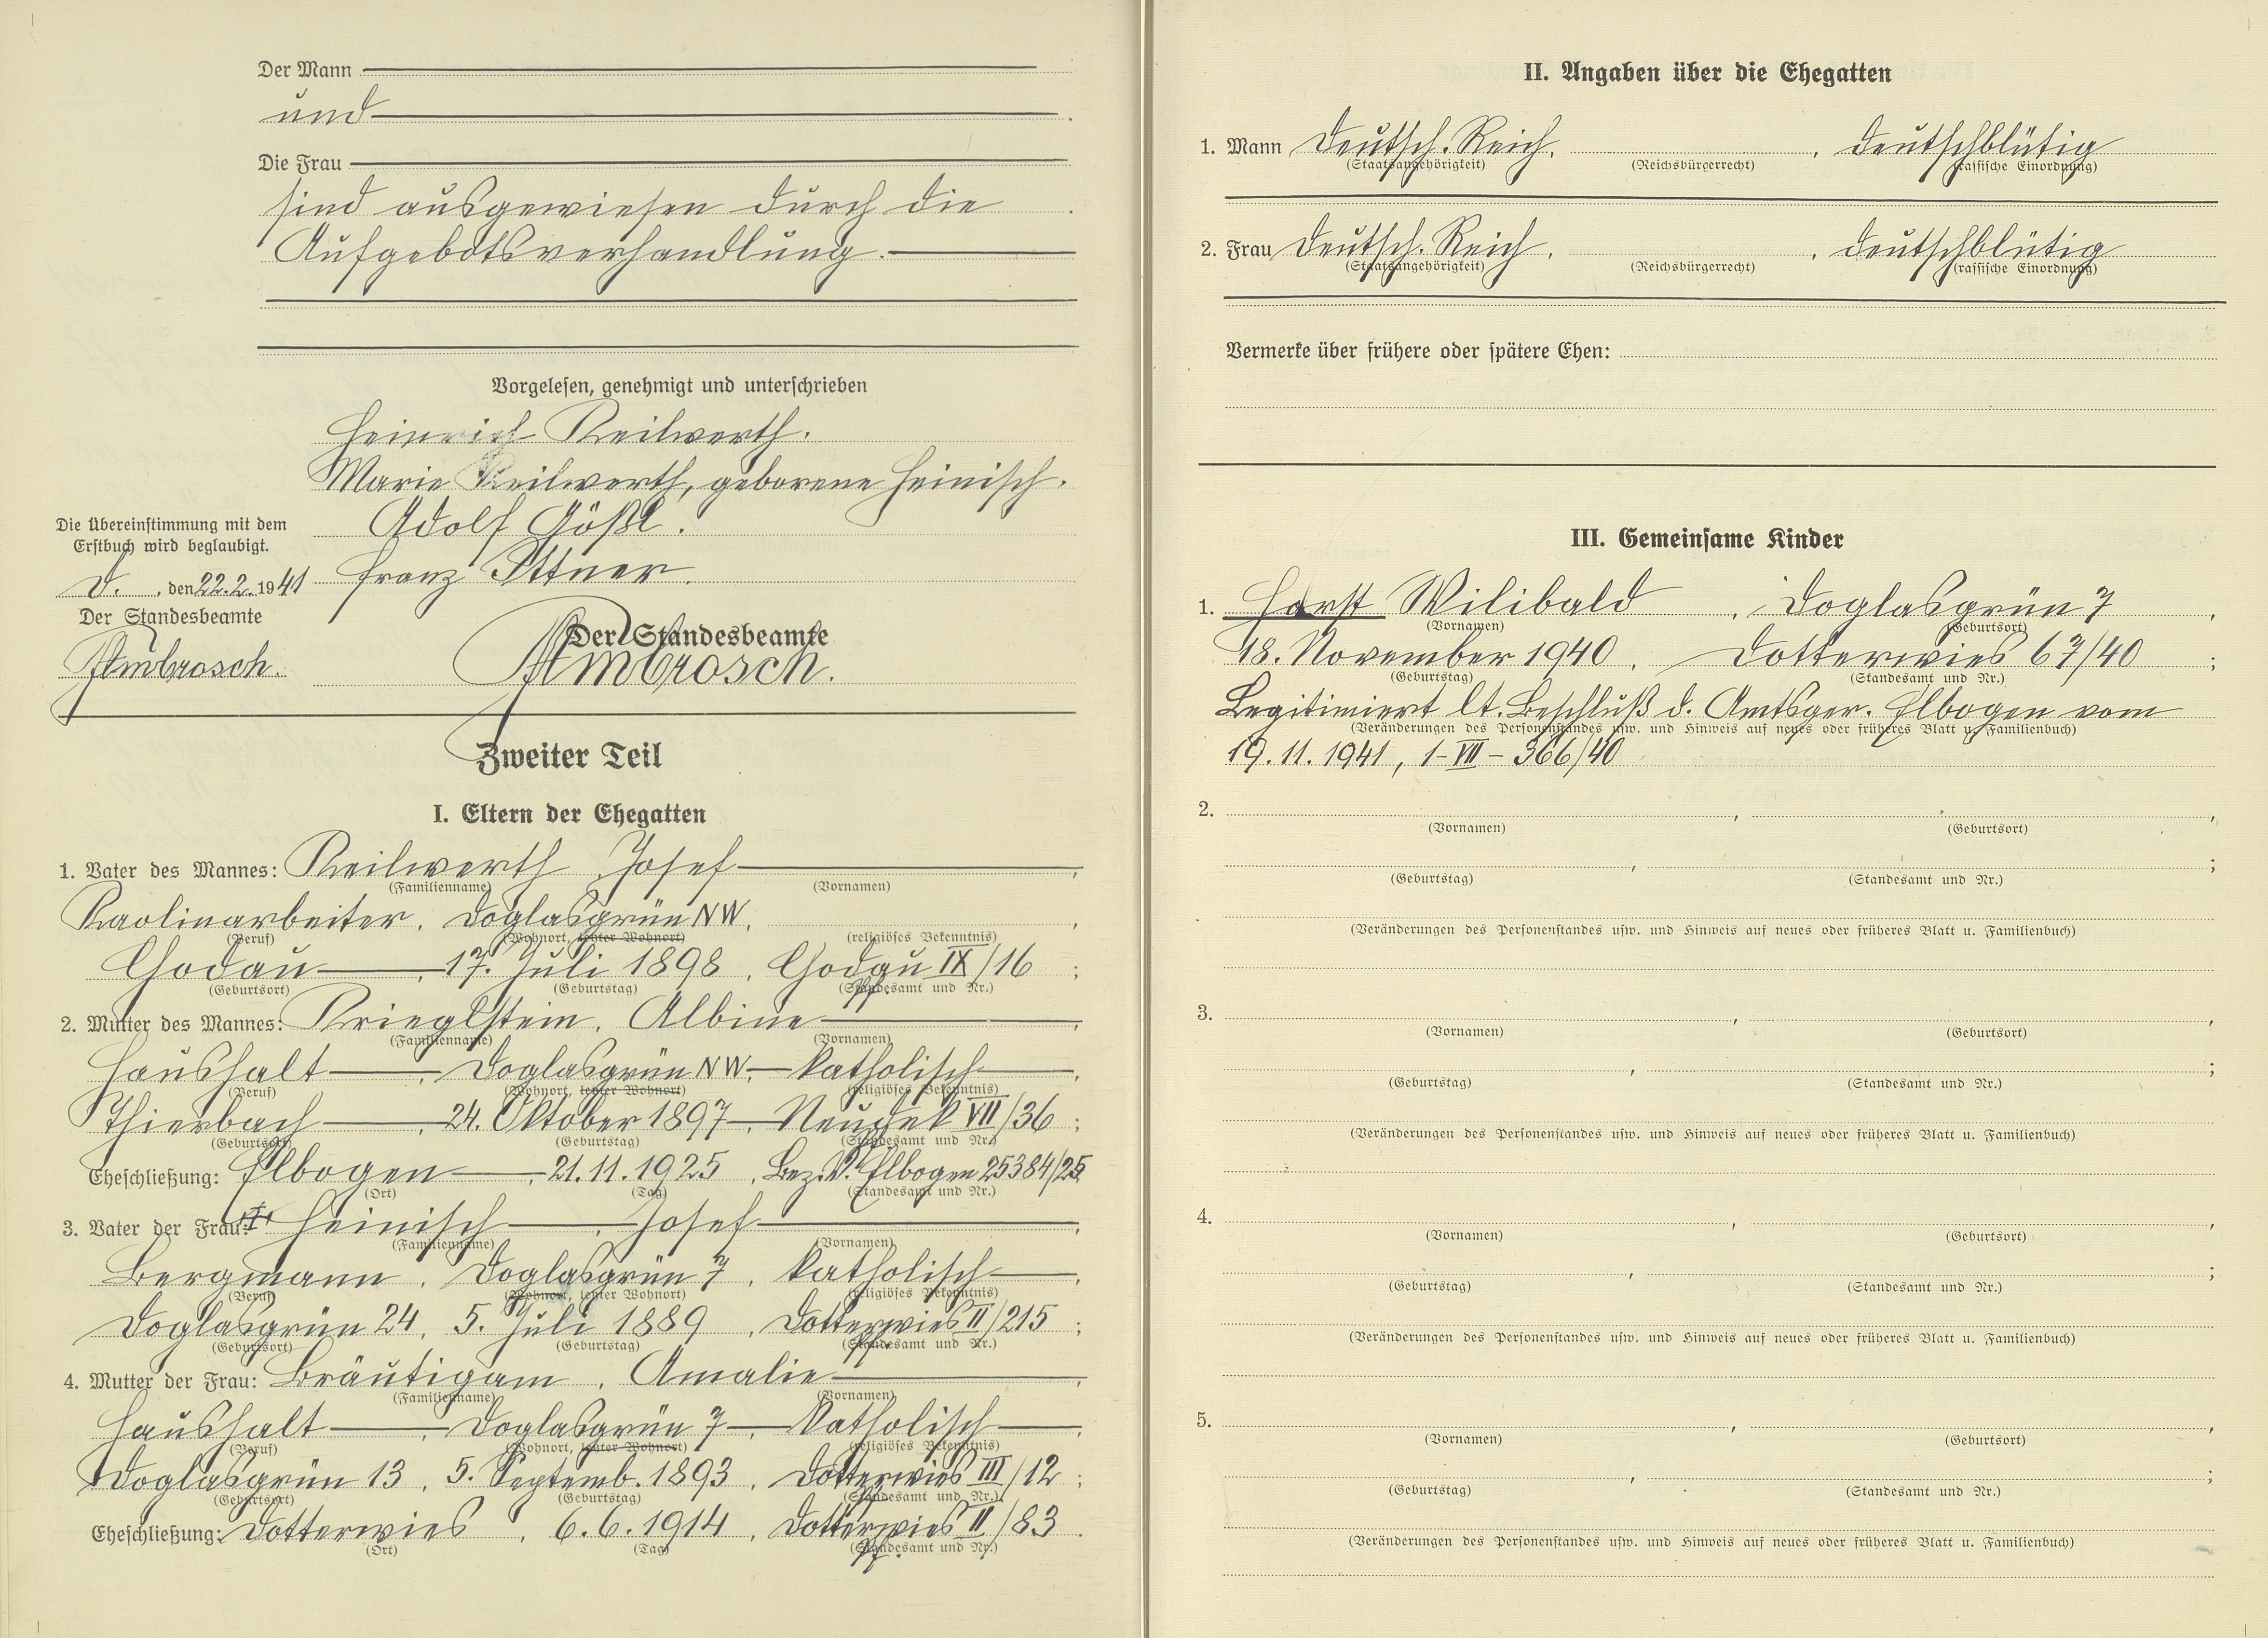 Der Mann
und
Die Frau
sind ausgewiesen durch die
Aufgebotsverhandlung.
Vorgelesen, genehmigt und unterschrieben
Heinrich Keilwerth.
Marie Keilwerth, geborene Heinisch.
Adolf Gößl.
Franz Ittner.
Die Übereinstimmung mit dem
Erstbuch wird beglaubigt.
D. , den 22.2. 1941
Der Standesbeamte
Ambrosch.
Der Standesbeamte
Ambrosch.
Zweiter Teil
I. Eltern der Ehegatten
1. Vater des Mannes: Keilwerth , Josef ,
(Familienname) (Vornamen)
Kaolinarbeiter , Doglasgrün NW. , ,
(Beruf) (Wohnort, letzter Wohnort) (religiöses Bekenntnis)
Chodau , 17. Juli 1898 , Chodau IX/16 ;
(Geburtsort) (Geburtstag) (Standesamt und Nr.)
2. Mutter des Mannes: Krieglstein , Albine ,
(Familienname) (Vornamen)
Haushalt , Doglasgrün NW. , katholisch ,
(Beruf) (Wohnort, letzter Wohnort) (religiöses Bekenntnis)
Thierbach , 24. Oktober 1897 , Neudek VII/36 ;
(Geburtsort) (Geburtstag) (Standesamt und Nr.)
Eheschließung: Elbogen , 21.11.1925 , Bez. V. Elbogen 25384/25
(Ort) (Tag) (Standesamt und Nr.)
3. Vater der Frau: Heinisch , Josef ,
(Familienname) (Vornamen)
Bergmann , Doglasgrün 7 , katholisch ,
(Beruf) (Wohnort, letzter Wohnort) (religiöses Bekenntnis)
Doglasgrün 24 , 5. Juli 1889 , Dotterwies II/215 ;
(Geburtsort) (Geburtstag) (Standesamt und Nr.)
4. Mutter der Frau: Bräutigam , Amalie ,
(Familienname) (Vornamen)
Haushalt , Doglasgrün 7 , katholisch ,
(Beruf) (Wohnort, letzter Wohnort) (religiöses Bekenntnis)
Doglasgrün 13 , 5. Septemb. 1893 , Dotterwies III/12 ;
(Geburtsort) (Geburtstag) (Standesamt und Nr.)
Eheschließung: Dotterwies , 6.6.1914 , Dotterwies II/83 .
(Ort) (Tag) (Standesamt und Nr.)
II. Angaben über die Ehegatten
1. Mann Deutsch. Reich , , deutschblütig
(Staatsangehörigkeit) (Reichsbürgerrecht) (rassische Einordnung)
2. Frau Deutsch. Reich , , deutschblütig
(Staatsangehörigkeit) (Reichsbürgerrecht) (rassische Einordnung)
Vermerke über frühere oder spätere Ehen:
III. Gemeinsame Kinder
1. Horst Wilibald , Doglasgrün 7 ,
(Vornamen) (Geburtsort)
18. November 1940 , Dotterwies 67/40 ;
(Geburtstag) (Standesamt und Nr.)
Legitimiert lt. Beschluß d. Amtsger. Elbogen vom
(Veränderungen des Personenstandes usw. und Hinweis auf neues oder früheres Blatt u. Familienbuch)
19.11.1941, 1-VII-366/40
2. , ,
(Vornamen) (Geburtsort)
, ;
(Geburtstag) (Standesamt und Nr.)
(Veränderungen des Personenstandes usw. und Hinweis auf neues oder früheres Blatt u. Familienbuch)
3. , ,
(Vornamen) (Geburtsort)
, ;
(Geburtstag) (Standesamt und Nr.)
(Veränderungen des Personenstandes usw. und Hinweis auf neues oder früheres Blatt u. Familienbuch)
4. , ,
(Vornamen) (Geburtsort)
, ;
(Geburtstag) (Standesamt und Nr.)
(Veränderungen des Personenstandes usw. und Hinweis auf neues oder früheres Blatt u. Familienbuch)
5. , ,
(Vornamen) (Geburtsort)
, ;
(Geburtstag) (Standesamt und Nr.)
(Veränderungen des Personenstandes usw. und Hinweis auf neues oder früheres Blatt u. Familienbuch)